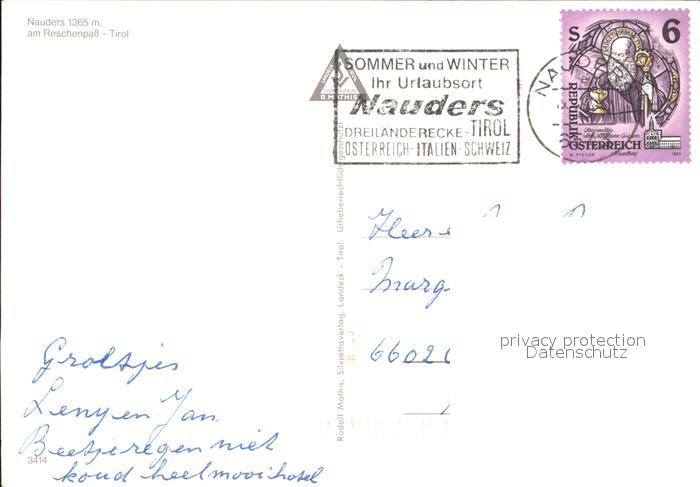 Nauders 1365 m,
am Reschenpaß - Tirol
SOMMER und WINTER
Ihr Urlaubsort
Nauders
DREILÄNDERECKE-TIROL
ÖSTERREICH-ITALIEN-SCHWEIZ
R. MATHIS
NAUDERS
S 6
REPUBLIK
ÖSTERREICH
Rudolf Mathis, Silvrettaverlag, Landeck - Tirol. Urheberrechtlich geschützt
Heer
Marg
6602
privacy protection
Datenschutz
Groetjes
Leny en Jan.
Beetje regen niet
koud heel mooi hotel
3414